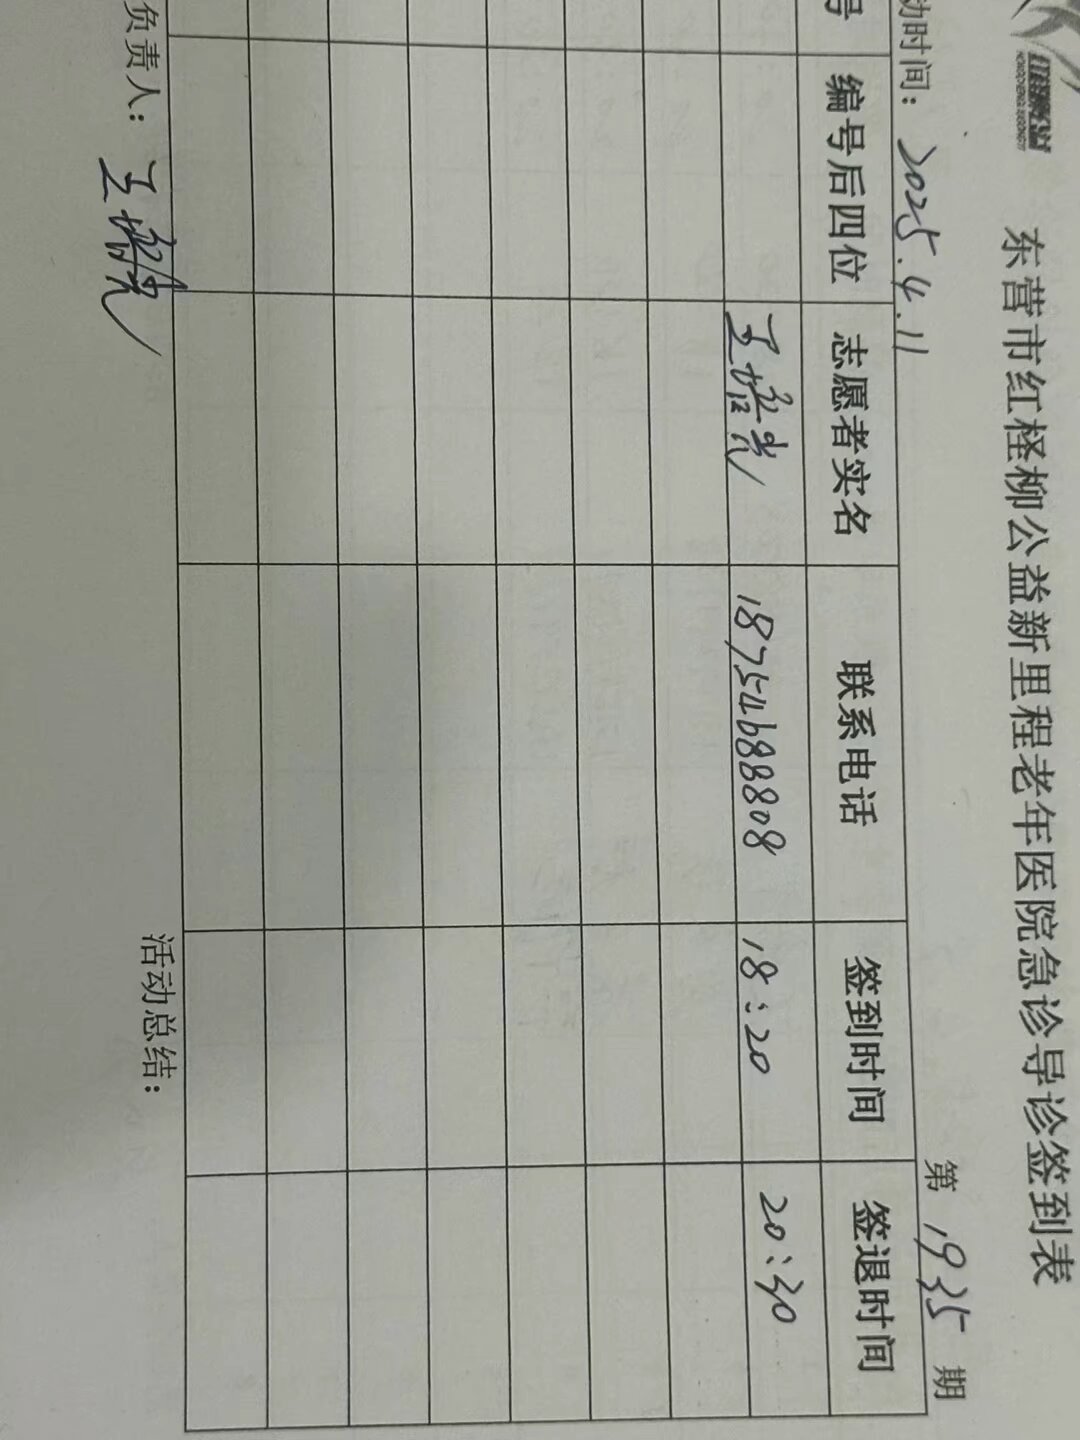 东营市红柽柳公益新里程老年医院急诊导诊签到表
动时间：2025.4.11 第 1935 期
号 编号后四位 志愿者实名 联系电话 签到时间 签退时间
王 18754688808 18:20 20:30
负责人：王 活动总结：